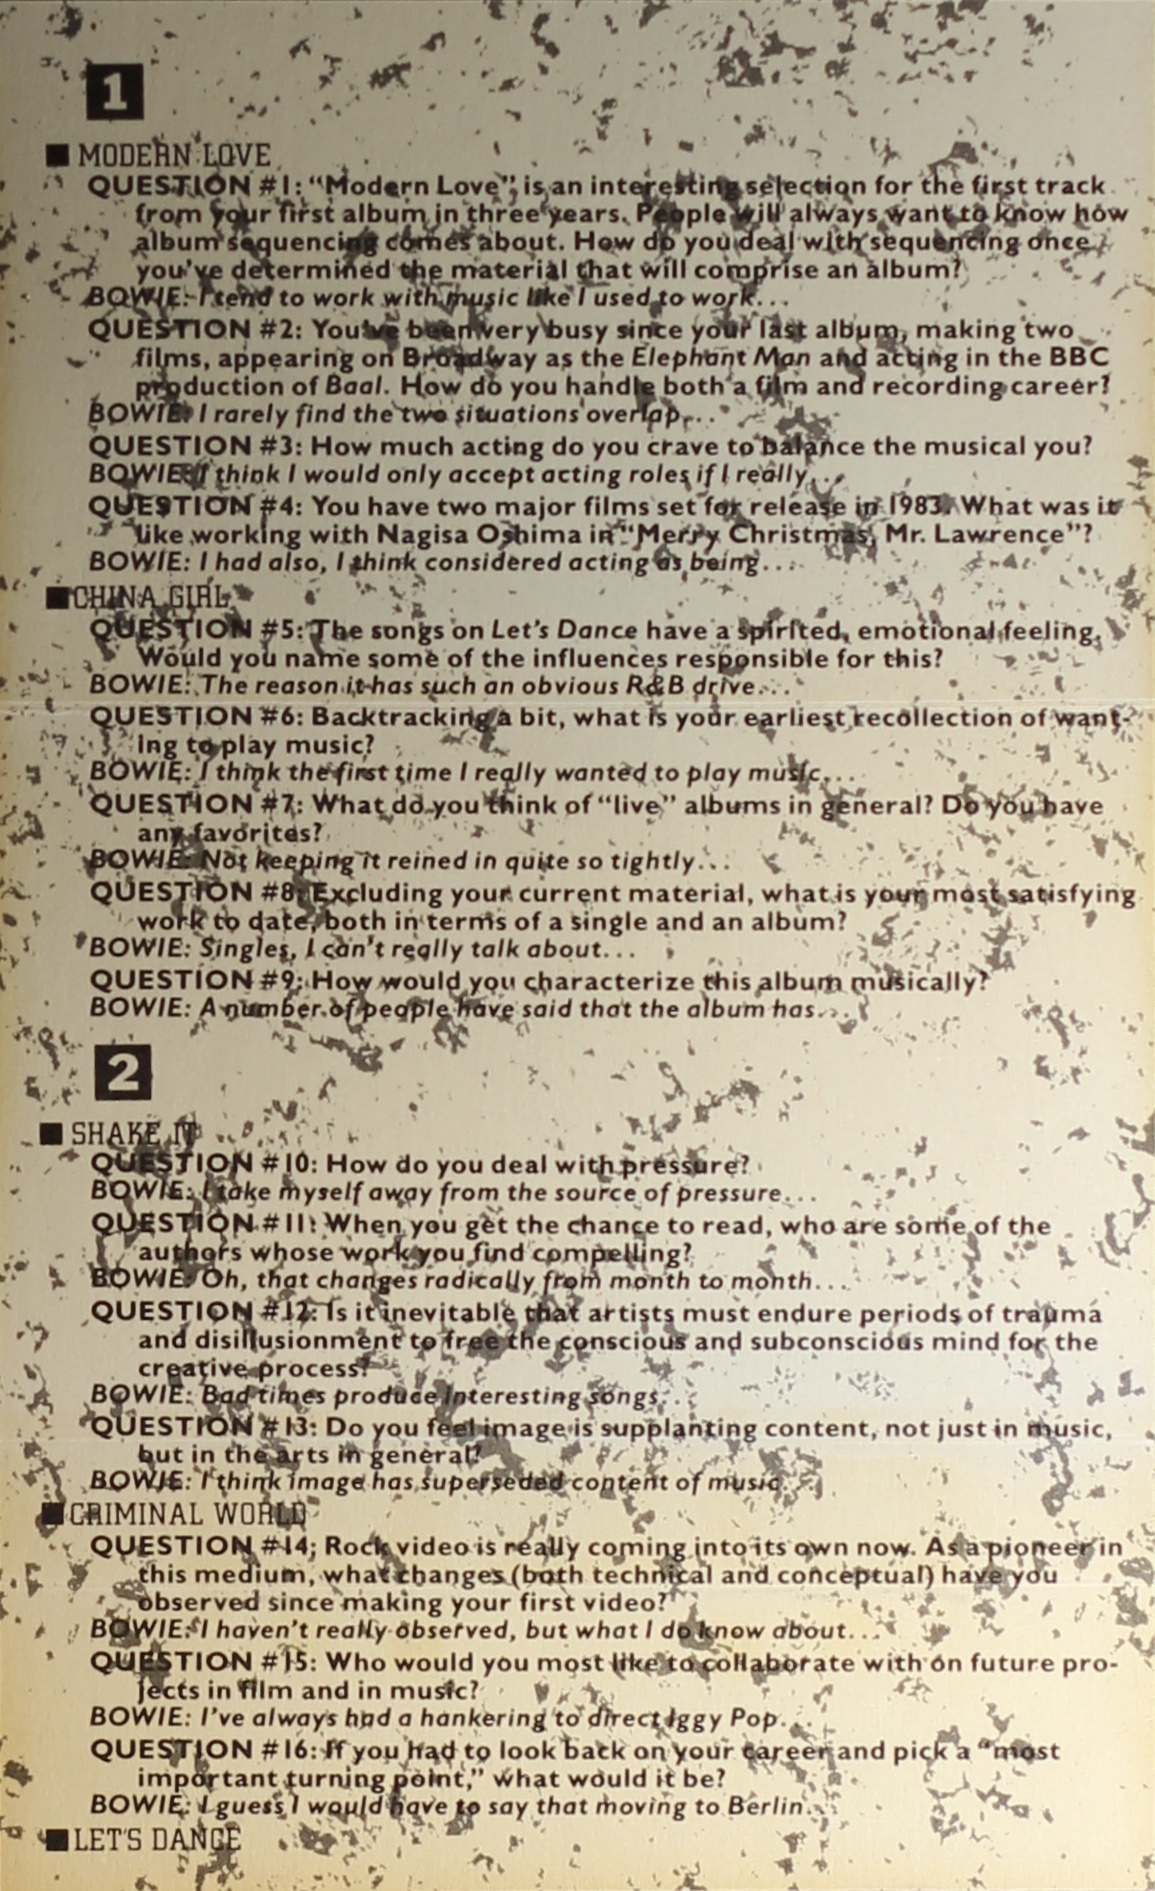 1
MODERN LOVE
QUESTION #1: "Modern Love", is an interesting selection for the first track
from your first album in three years. People will always want to know how
album sequencing comes about. How do you deal with sequencing once
you've determined the material that will comprise an album?
BOWIE: I tend to work with music like I used to work...
QUESTION #2: You've been very busy since your last album, making two
films, appearing on Broadway as the Elephant Man and acting in the BBC
production of Baal. How do you handle both a film and recording career?
BOWIE: I rarely find the two situations overlap...
QUESTION #3: How much acting do you crave to balance the musical you?
BOWIE: I think I would only accept acting roles if I really...
QUESTION #4: You have two major films set for release in 1983. What was it
like working with Nagisa Oshima in "Merry Christmas, Mr. Lawrence"?
BOWIE: I had also, I think considered acting as being...
CHINA GIRL
QUESTION #5: The songs on Let's Dance have a spirited, emotional feeling.
Would you name some of the influences responsible for this?
BOWIE: The reason it has such an obvious R&B drive...
QUESTION #6: Backtracking a bit, what is your earliest recollection of want-
ing to play music?
BOWIE: I think the first time I really wanted to play music...
QUESTION #7: What do you think of "live" albums in general? Do you have
any favorites?
BOWIE: Not keeping it reined in quite so tightly...
QUESTION #8: Excluding your current material, what is your most satisfying
work to date, both in terms of a single and an album?
BOWIE: Singles, I can't really talk about...
QUESTION #9: How would you characterize this album musically?
BOWIE: A number of people have said that the album has...
2
SHAKE IT
QUESTION #10: How do you deal with pressure?
BOWIE: I take myself away from the source of pressure...
QUESTION #11: When you get the chance to read, who are some of the
authors whose work you find compelling?
BOWIE: Oh, that changes radically from month to month...
QUESTION #12: Is it inevitable that artists must endure periods of trauma
and disillusionment to free the conscious and subconscious mind for the
creative process?
BOWIE: Bad times produce interesting songs...
QUESTION #13: Do you feel image is supplanting content, not just in music,
but in the arts in general?
BOWIE: I think image has superseded content of music...
CRIMINAL WORLD
QUESTION #14: Rock video is really coming into its own now. As a pioneer in
this medium, what changes (both technical and conceptual) have you
observed since making your first video?
BOWIE: I haven't really observed, but what I do know about...
QUESTION #15: Who would you most like to collaborate with on future pro-
jects in film and in music?
BOWIE: I've always had a hankering to direct Iggy Pop...
QUESTION #16: If you had to look back on your career and pick a "most
important turning point," what would it be?
BOWIE: I guess I would have to say that moving to Berlin...
LET'S DANCE